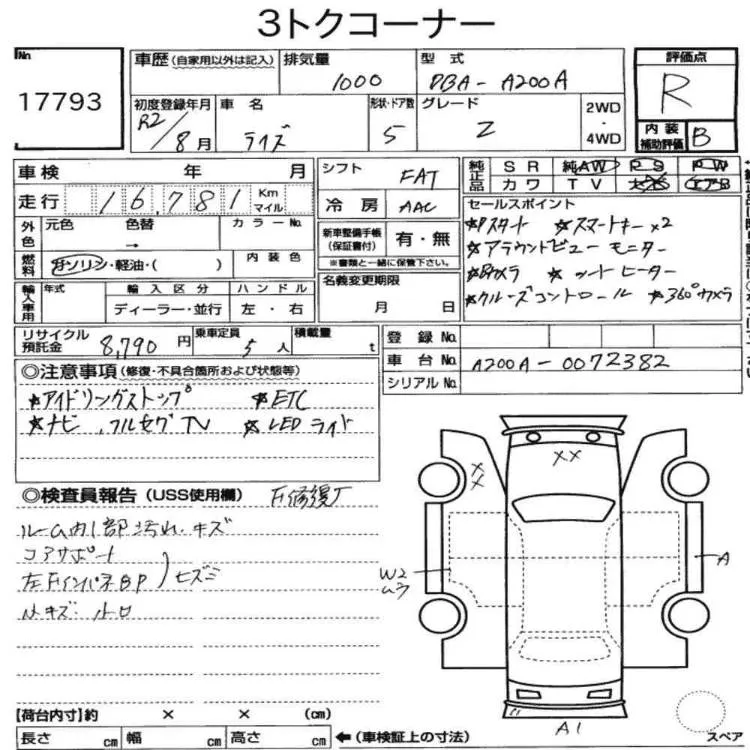 3トクコーナー
No
17793
車歴 (自家用以外は記入) 排気量 1000 型式 DBA-A200A
初度登録年月 R2/8月 車名 ライズ 形状・ドア数 5 グレード Z 2WD・4WD
評価点 R
内装補助評価 B
車検 年 月
走行 16,781 Km マイル
外色 元色 色替 → カラーNo.
燃料 ガソリン・軽油・( ) 内装色
輸入車用 年式 輸入区分 ハンドル
ディーラー・並行 左・右
リサイクル預託金 8,790円 乗車定員 5人 積載量 t
シフト FAT
冷房 AAC
新車整備手帳(保証書付) 有・無
※書類と一緒に保管下さい。
名義変更期限
月 日
純正品 SR 純AW PS PW
カワ TV エアB
セールスポイント
★Pスタート ★スマートキー×2
★アラウンドビューモニター
★Bカメラ ★シートヒーター
★クルーズコントロール ★360°カメラ
登録No.
車台No. A200A-0072382
シリアルNo.
◎注意事項(修復・不具合箇所および状態等)
★アイドリングストップ ★ETC
★ナビ、フルセグTV ★LEDライト
◎検査員報告(USS使用欄) F修復了
ルーム内1部汚れ、キズ
コアサポート
左FインパネBP)ヒズミ
XX
XX
W2
ムラ
A
A1
【荷台内寸】約 × × (cm)
長さ cm 幅 cm 高さ cm ←(車検証上の寸法)
スペア